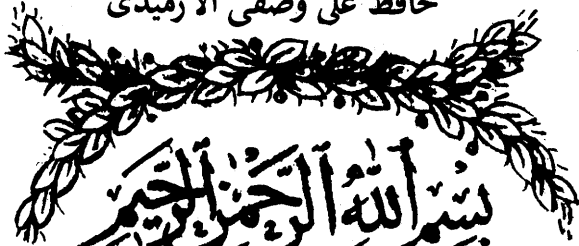 حافظ على وصفى الارميدى
بِسْمِ اللَّهِ الرَّحْمَٰنِ الرَّحِيمِ